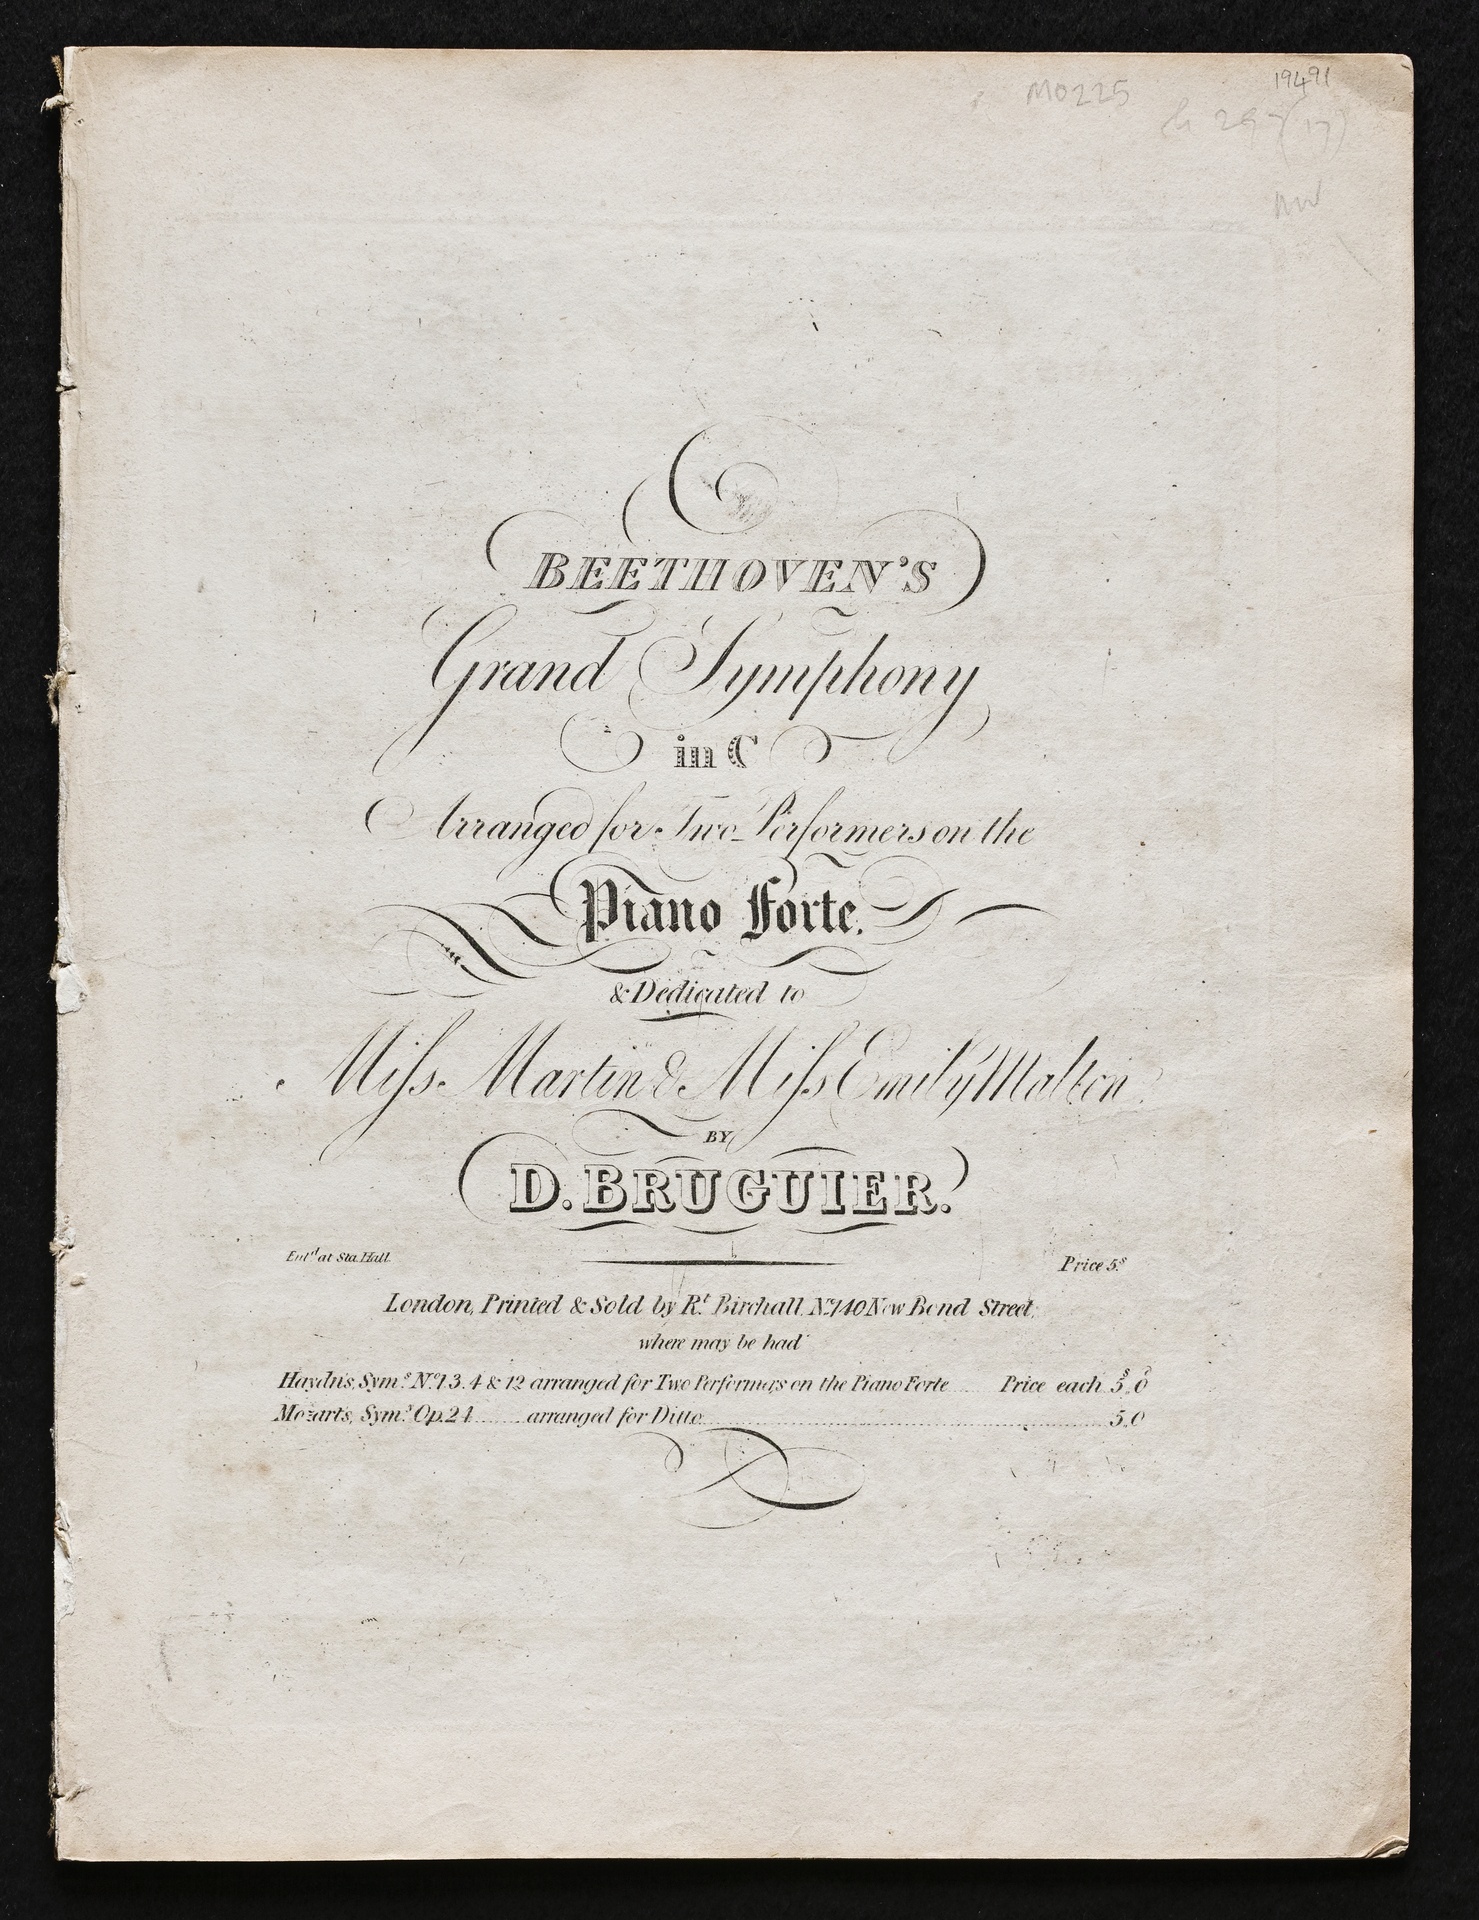 M0225
19491
BEETHOVEN'S
Grand Symphony
in C
Arranged for Two Performers on the
Piano Forte.
& Dedicated to
Miſs Martin & Miſs Emily Malton.
BY
D. BRUGUIER.
Ent.d at Sta. Hall.
Price 5.s
London, Printed & Sold by R.t Birchall. No. 140 New Bond Street,
where may be had
Haydn's, Sym.s No. 1. 3. 4 & 12 arranged for Two Performers on the Piano Forte .... Price each 5s,,0d
Mozart's, Sym.s Op. 24 ...... arranged for Ditto ...... 5,,0